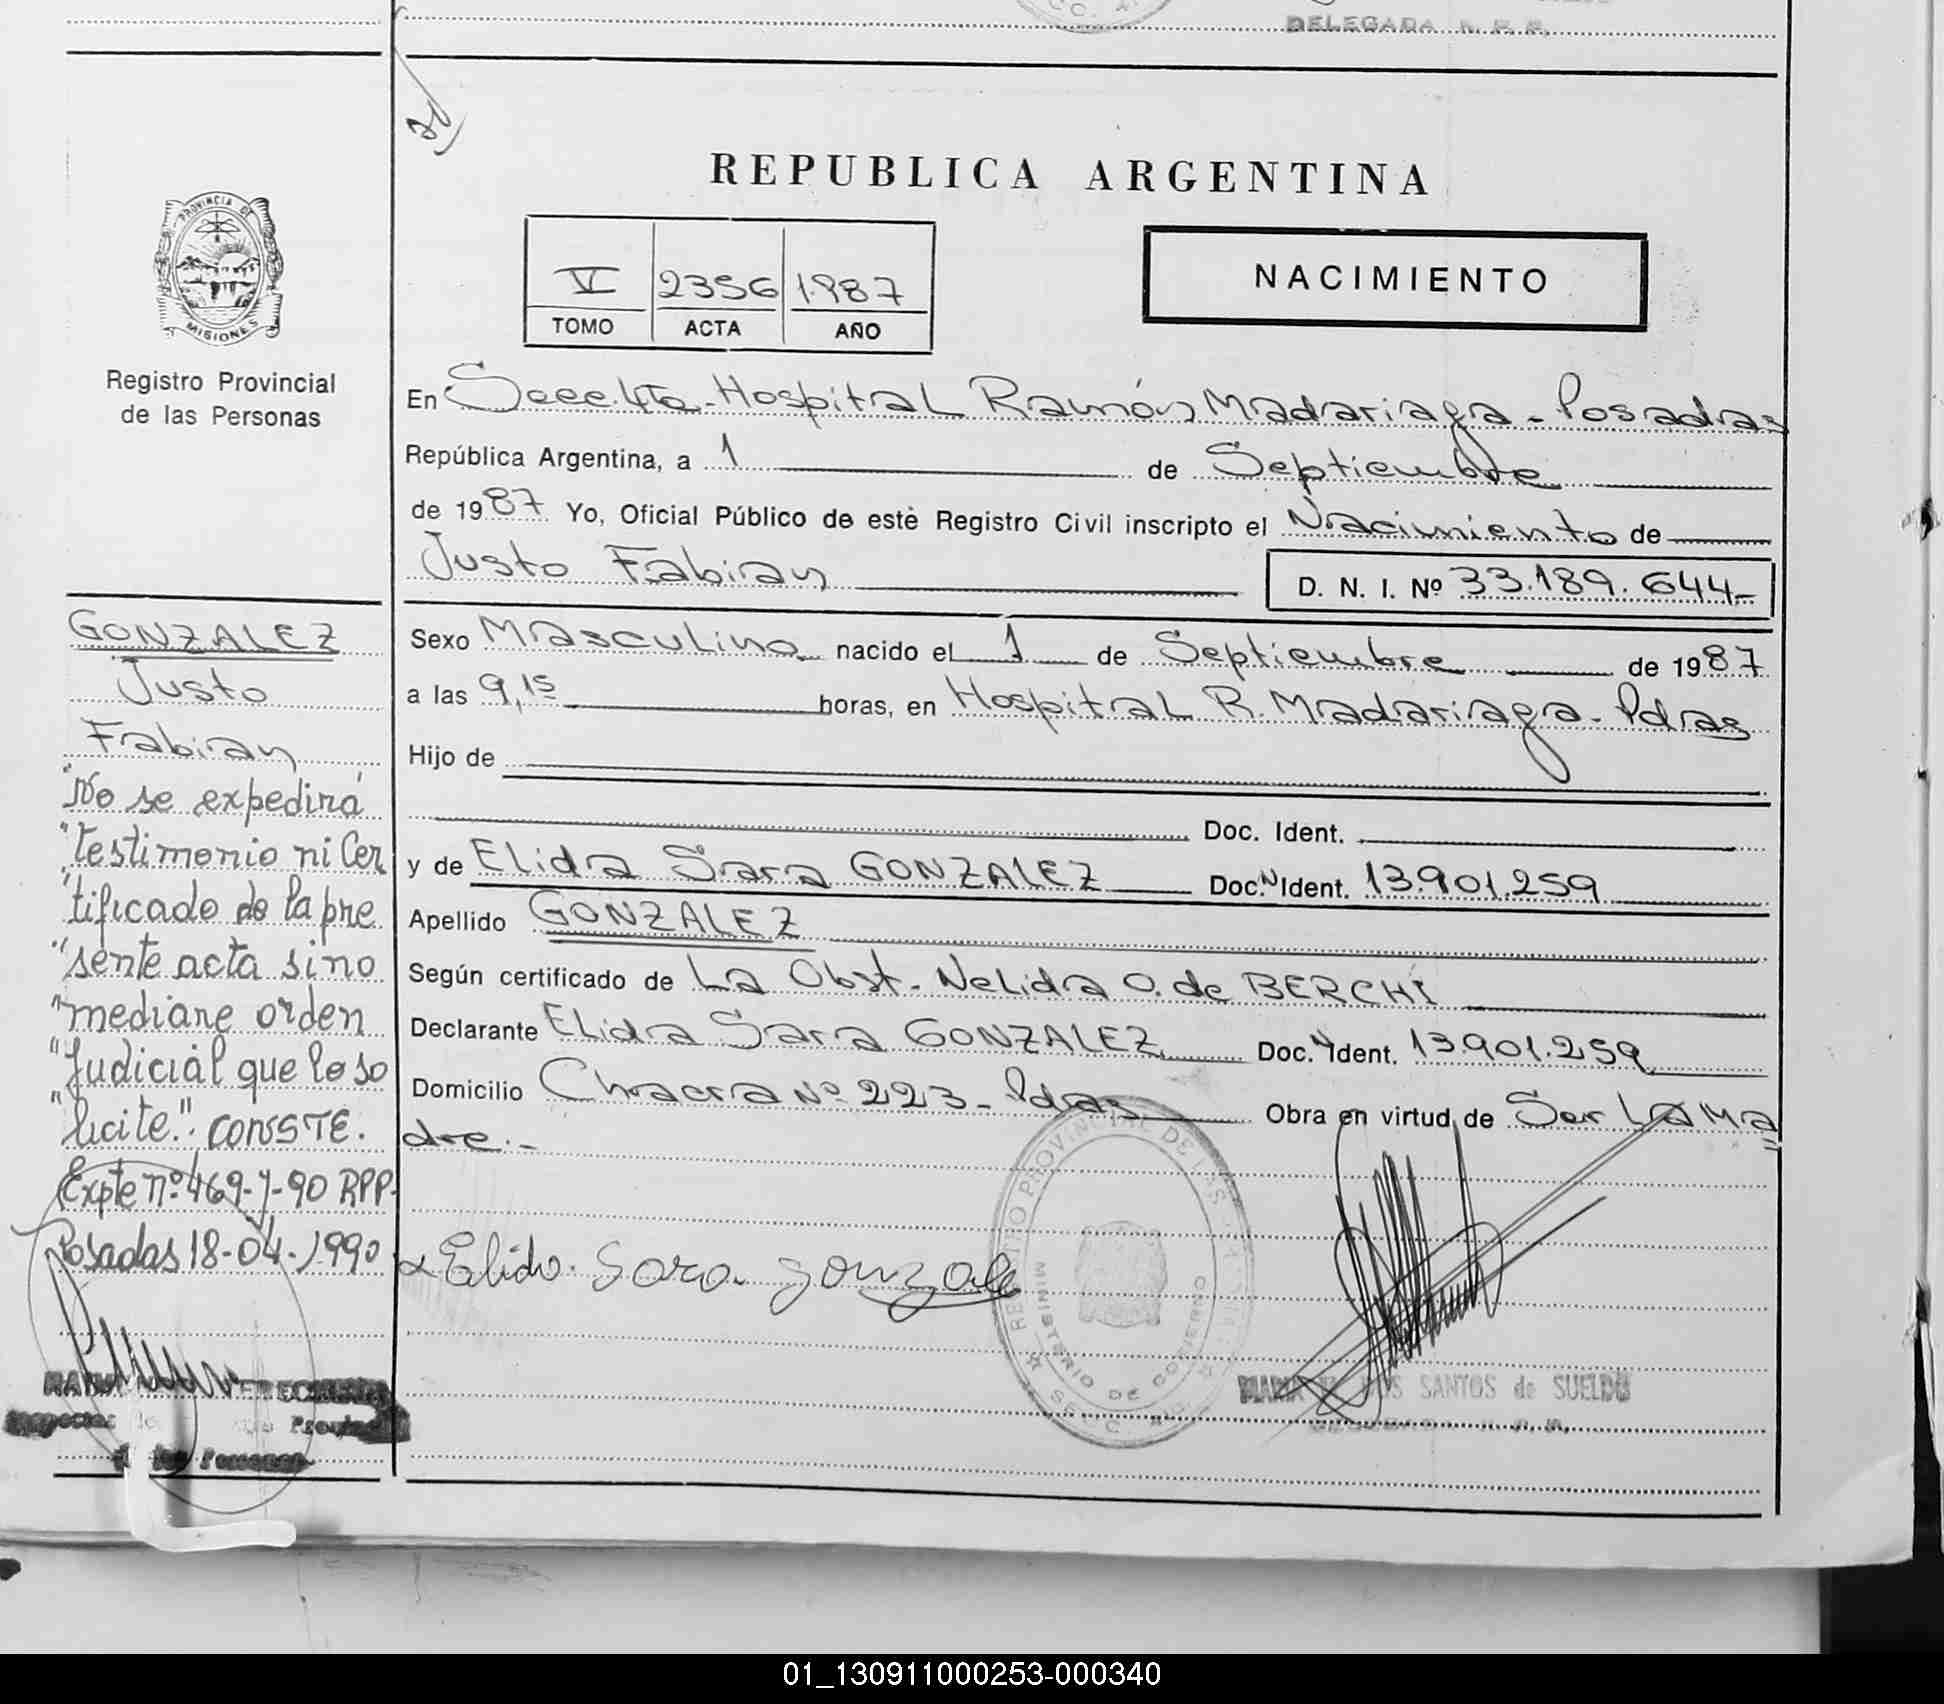 DELEGADA R. P. P.
REPUBLICA ARGENTINA
PROVINCIA DE
MISIONES
Registro Provincial
de las Personas
V 2356 1.987
TOMO ACTA AÑO
NACIMIENTO
En Secc.4ta-Hospital Ramón Madariaga - Posadas
República Argentina, a 1 de Septiembre
de 1987 Yo, Oficial Público de este Registro Civil inscripto el Nacimiento de
Justo Fabian
D. N. I. Nº 33.189.644-
Sexo Masculino nacido el 1 de Septiembre de 1987
a las 9,15 horas, en Hospital R. Madariaga - Pdas
Hijo de
Doc. Ident.
y de Elida Sara GONZALEZ Doc. Ident. 13.901.259
Apellido GONZALEZ
Según certificado de La Obst. Nelida O. de BERCHI
Declarante Elida Sara GONZALEZ Doc. Ident. 13.901.259
Domicilio Chacra Nº 223 - Pdas Obra en virtud de Ser La Ma
dre.-
GONZALEZ
Justo
Fabian
"No se expedirá
"testimonio ni Cer
"tificado de la pre
"sente acta sino
"mediane orden
"Judicial que lo so
"licite". CONSTE.
Expte nº 469-Y-90 RPP-
Posadas 18-04-1990
Elida Sara Gonzale
REGISTRO PROVINCIAL DE LAS
MINISTERIO DE GOBIERNO
MARIA DOS SANTOS de SUELDO
01_130911000253-000340